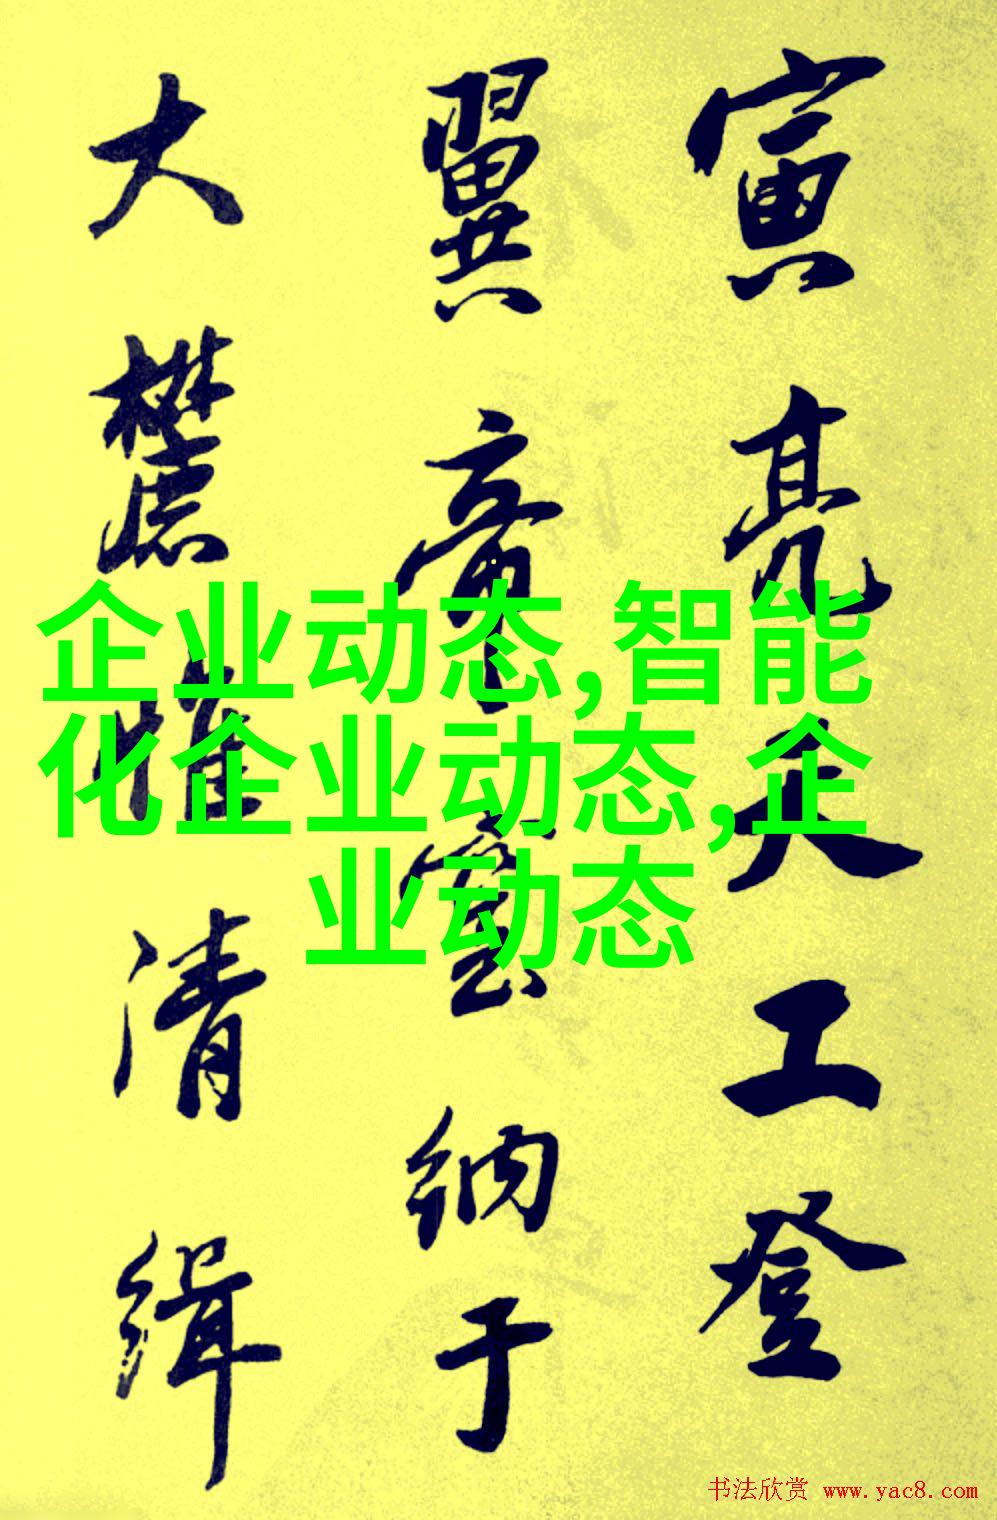 寅亮天工登
翼帝室納于
大麓惟清緝
企业动态,智能
化企业动态,企
业动态
书法欣赏 www.yac8.com